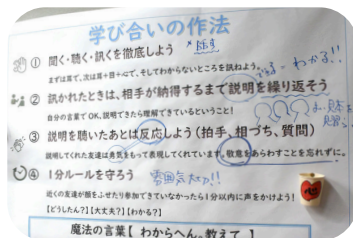 学び合いの作法
① 聞く・聴く・訊くを徹底しよう
まずは耳で、次は耳+目+心で、そしてわからないところを訊ねよう。
② 訊かれたときは、相手が納得するまで説明を繰り返そう
自分の言葉でOK、説明できたら理解できているということ!
③ 説明を聴いたあとは反応しよう(拍手、相づち、質問)
説明してくれた友達は勇気をもって表現してくれています。敬意をあらわすことを忘れずに。
雰囲気大切!!
④ 1分ルールを守ろう
近くの友達が顔をふせたり参加できていなかったら1分以内に声をかけよう!
【どうしたん?】【大丈夫?】【わかる?】
魔法の言葉【 わからへん。教えて 】